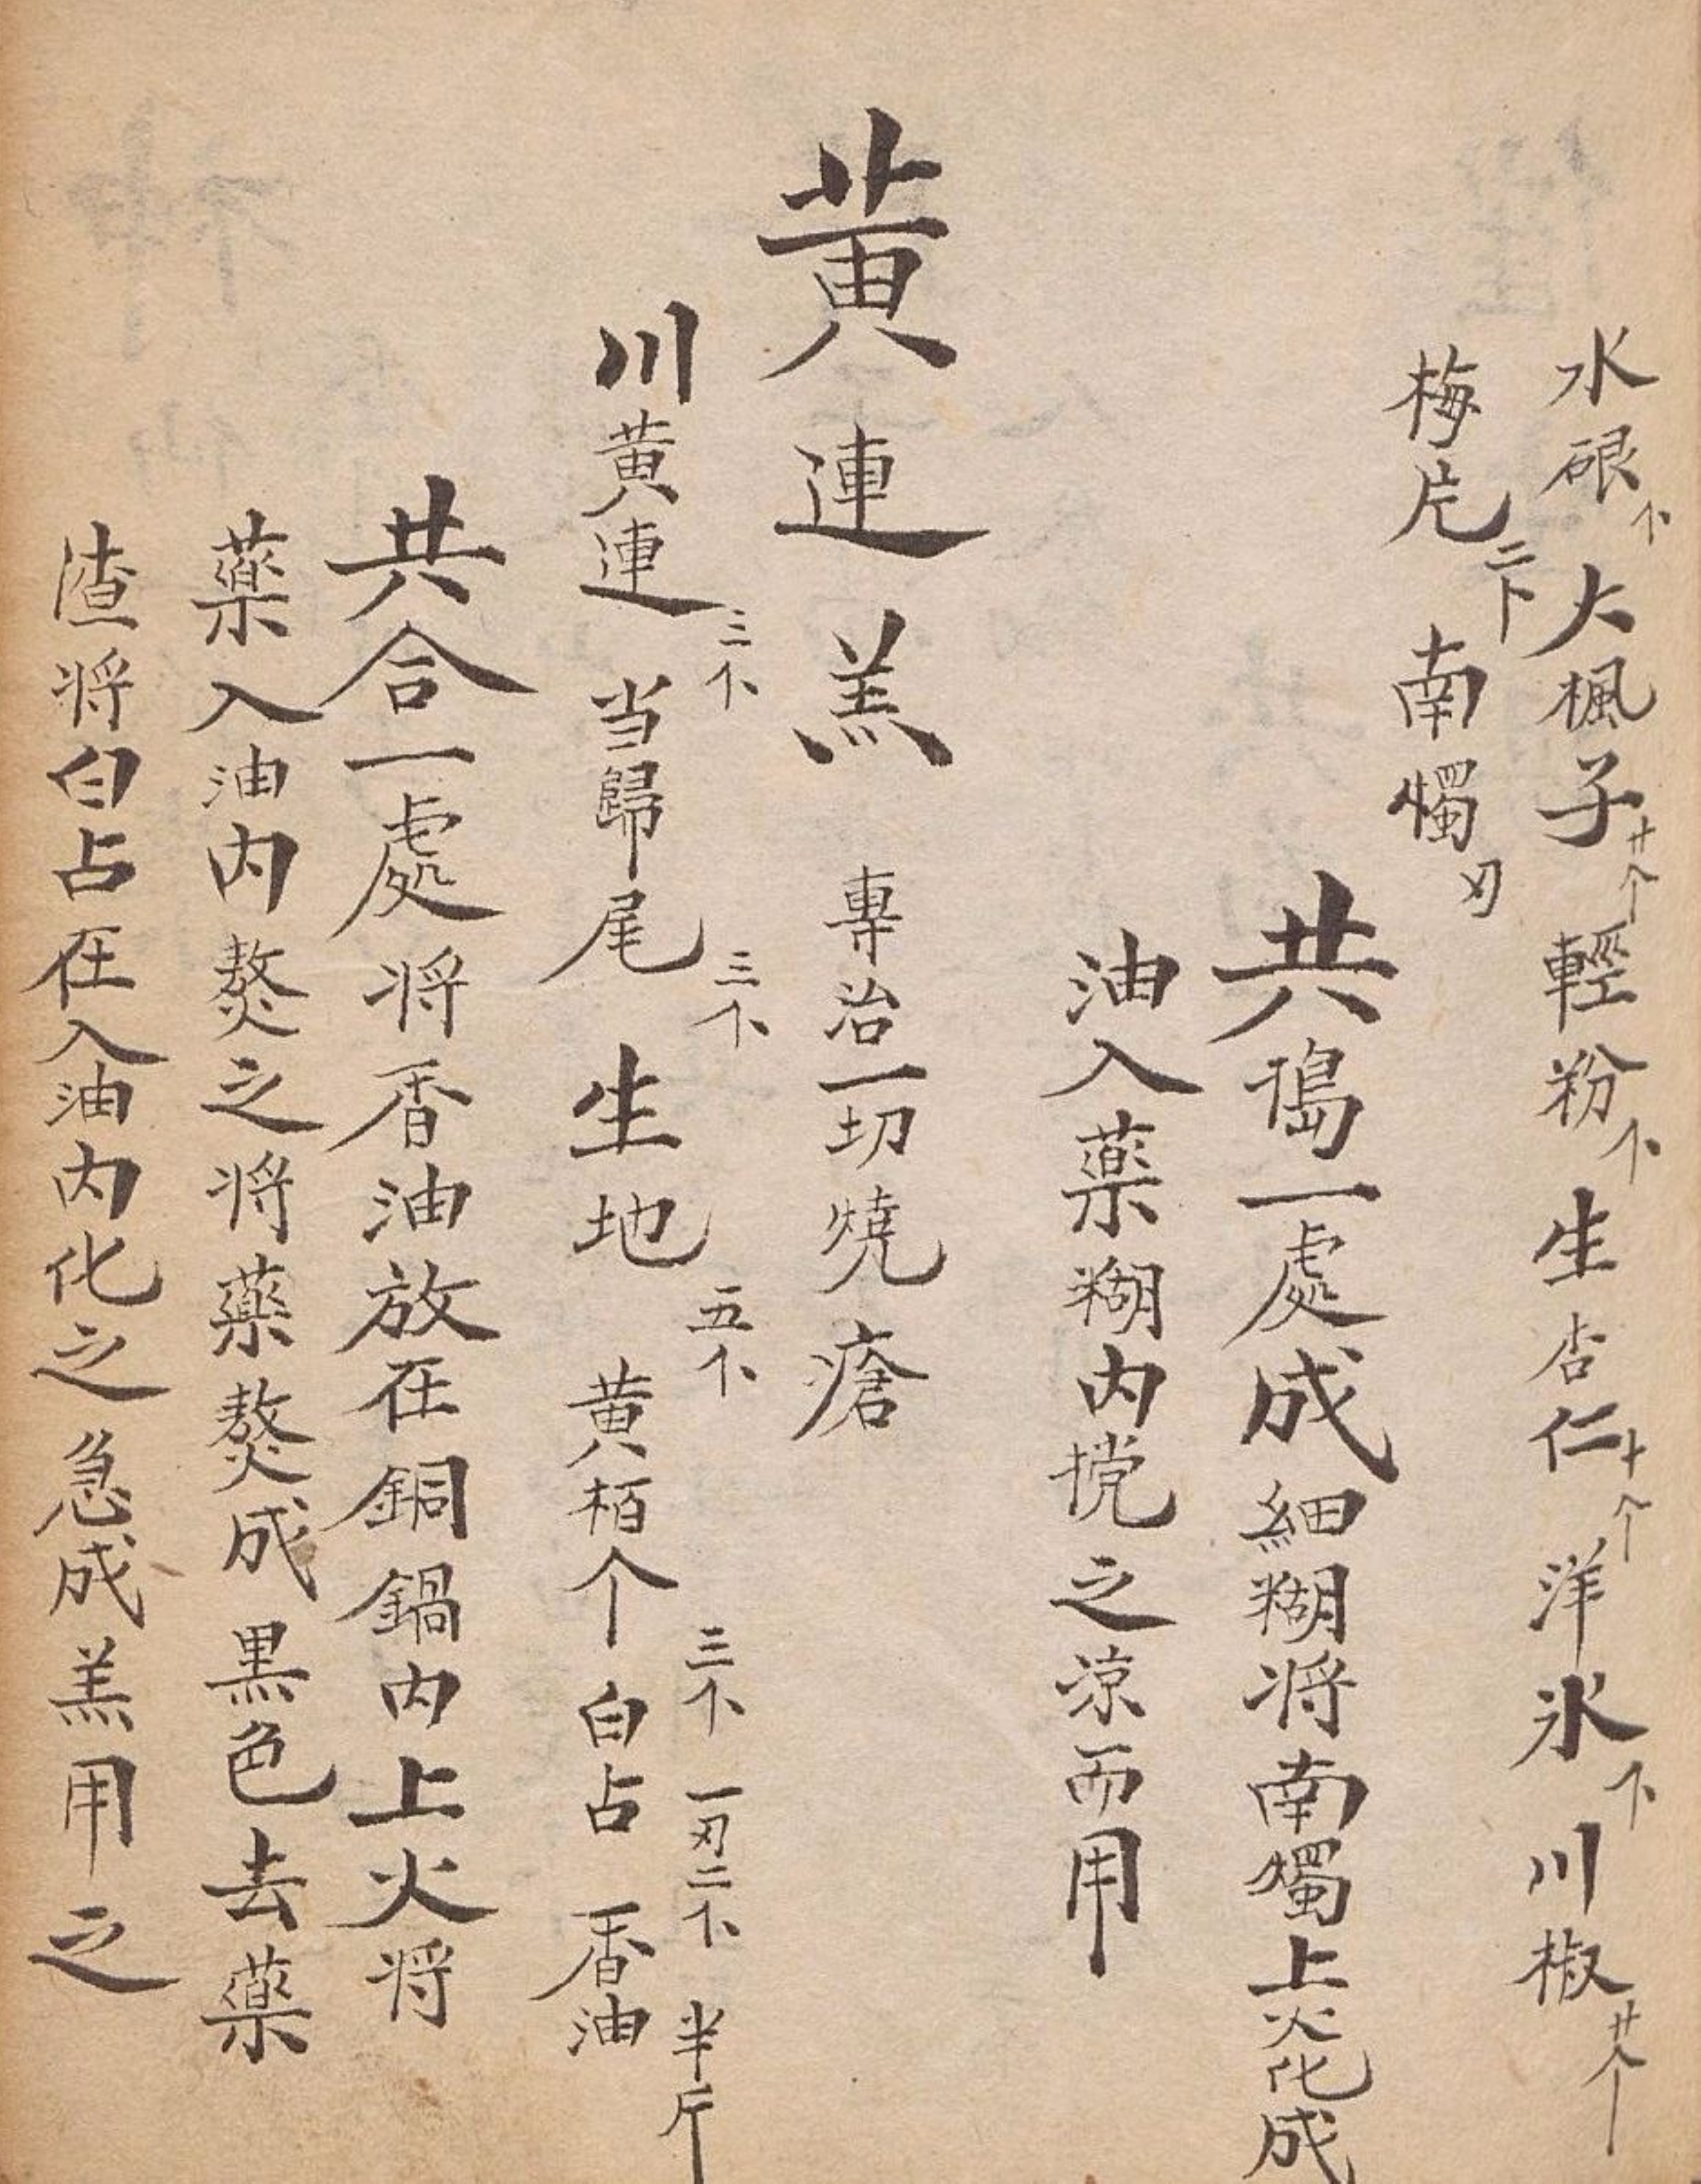 水砹 大楓子廿个 輕粉 生杏仁十个 洋氷 川椒廿个
梅片二 南燭刃
共搗一處成細糊将南燭上火化成
油入藥糊内搅之凉而用
黄連羔 專治一切燒瘡
川黄連三 当歸尾三 生地五 黄栢个三 白占一刃二 香油半斤
共合一處将香油放在銅鍋内上火将
藥入油内熬之将藥熬成黒色去藥
渣将白占在入油内化之急成羔用之